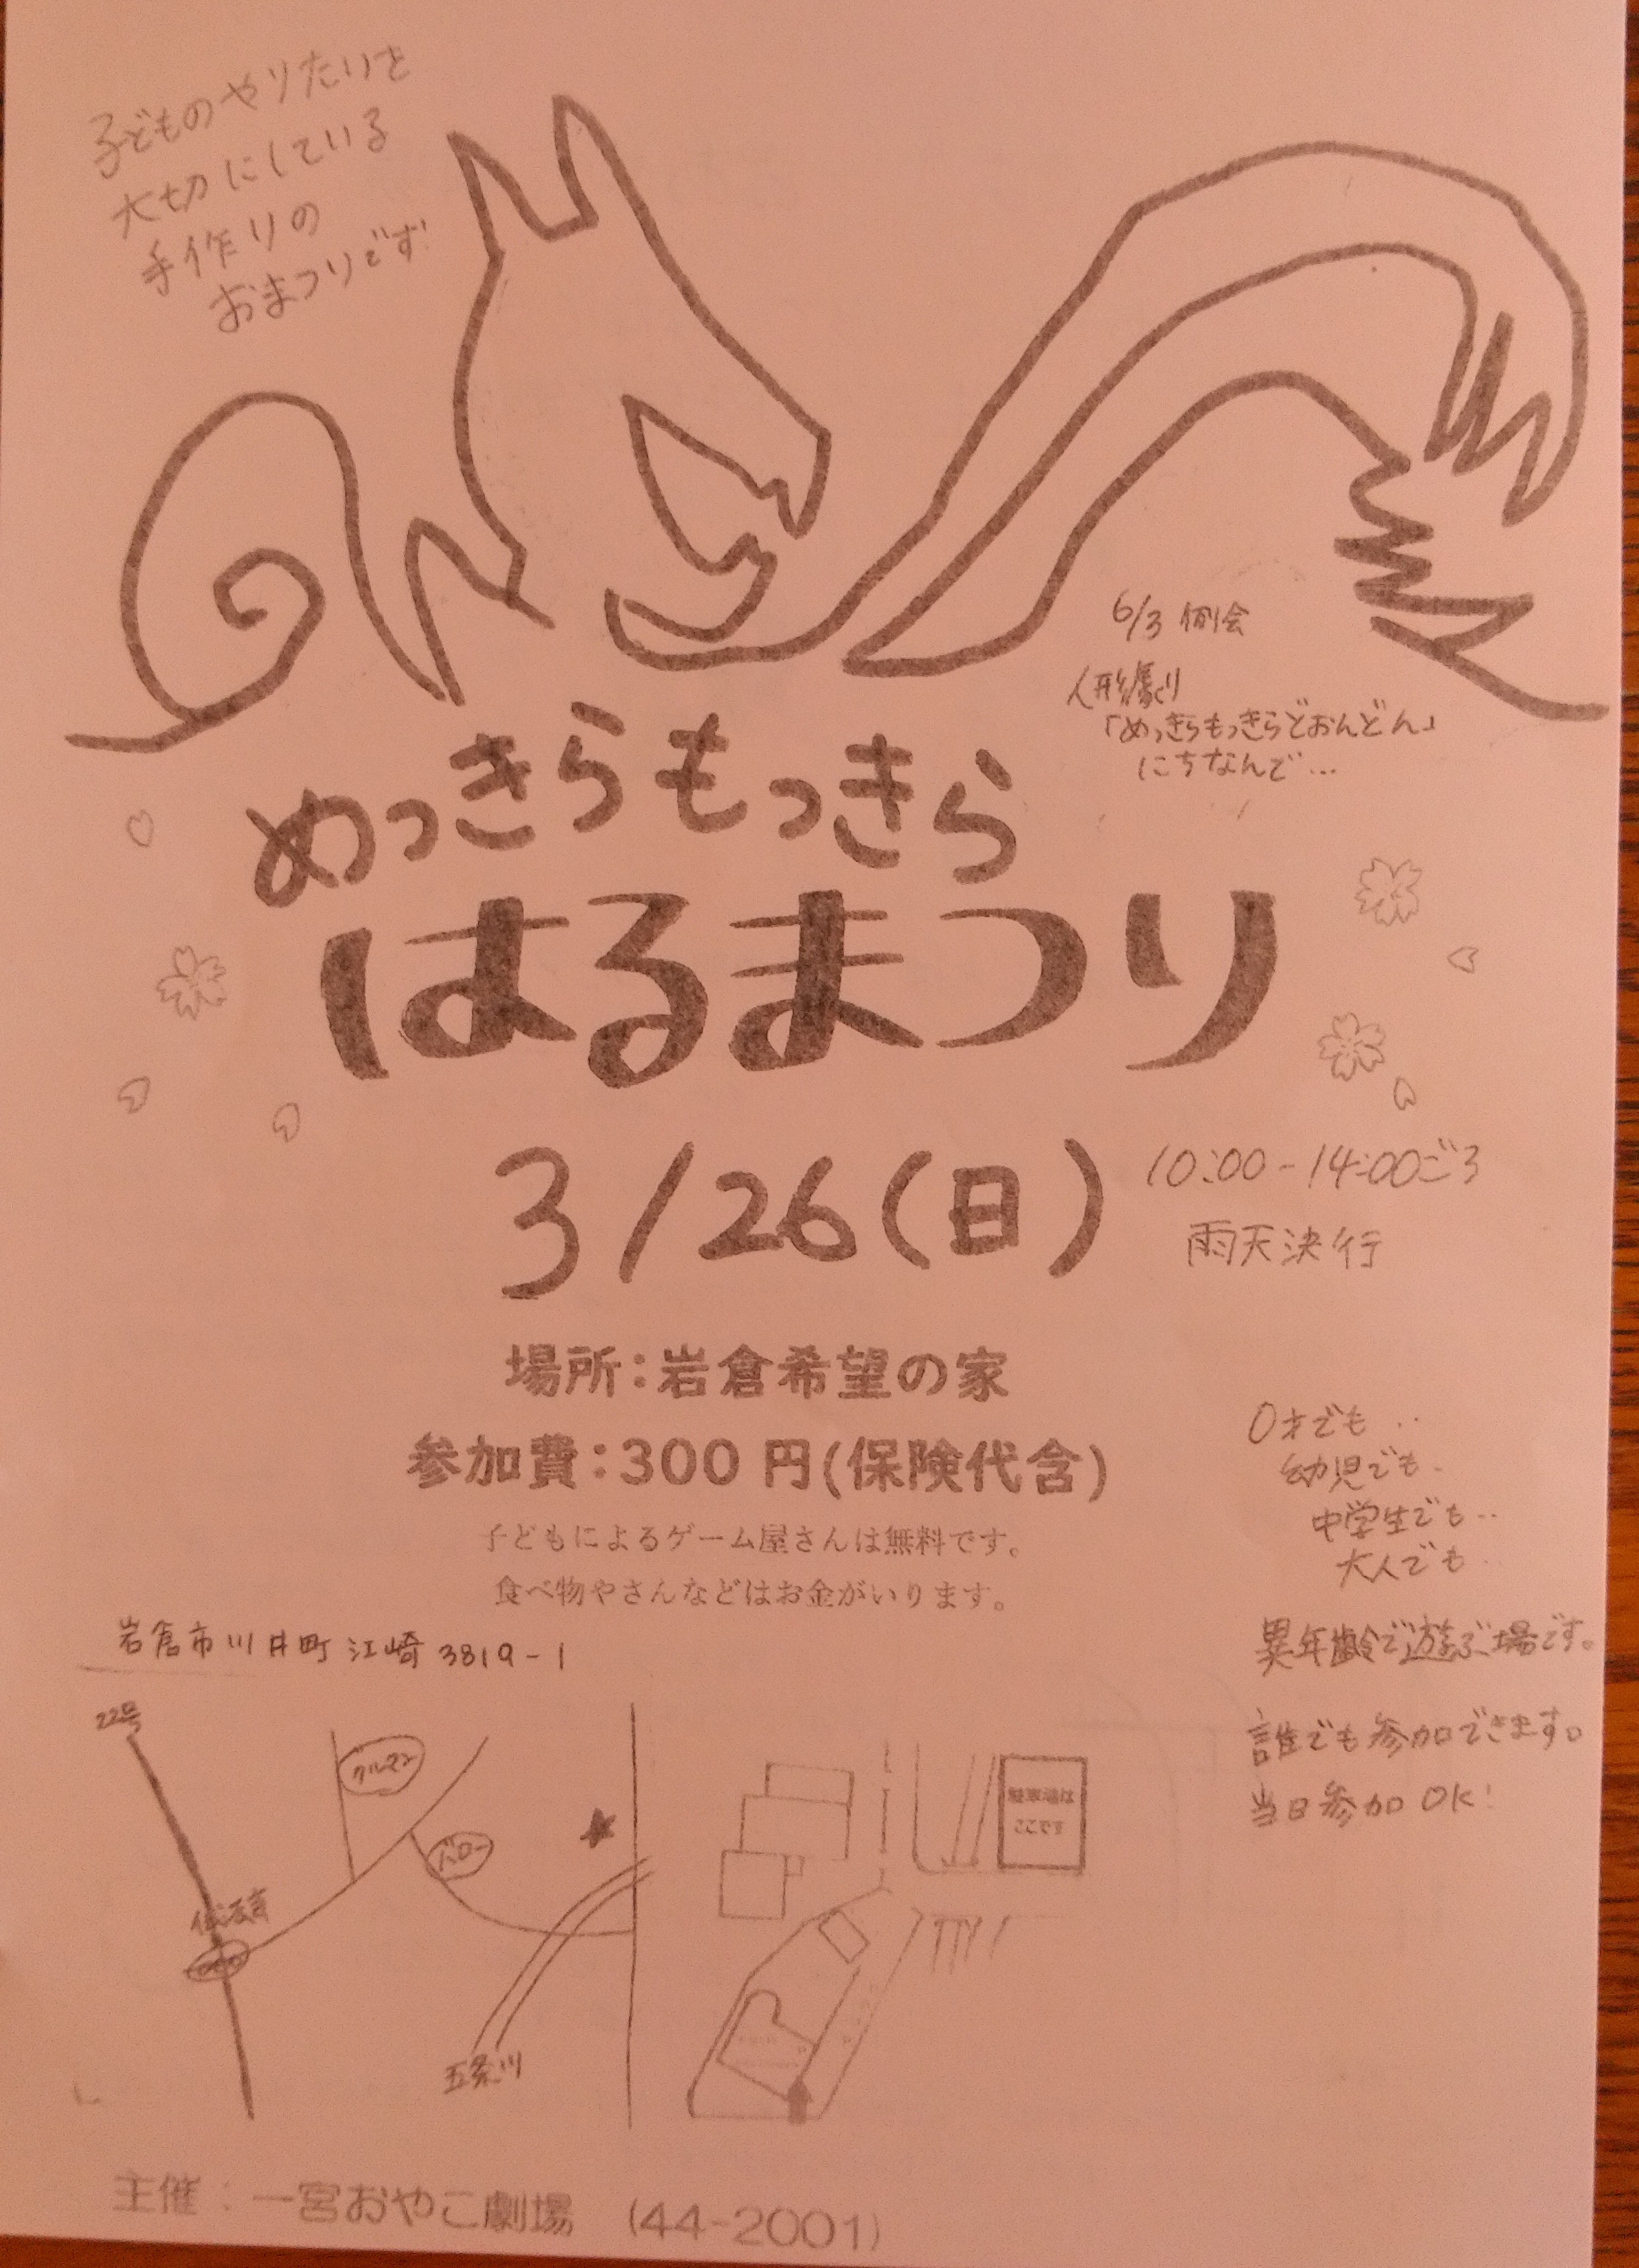 子どものやりたいを
大切にしている
手作りの
おまつりです!
6/3 例会
人形劇
「めっきらもっきらどおんどん」
にちなんで…
めっきらもっきら
はるまつり
3/26(日)
10:00-14:00ごろ
雨天決行
場所:岩倉希望の家
参加費:300 円(保険代含)
子どもによるゲーム屋さんは無料です。
食べ物やさんなどはお金がいります。
0才でも‥
幼児でも‥
中学生でも‥
大人でも‥
異年齢で遊ぶ場です。
誰でも参加できます。
当日参加OK!
岩倉市川井町江崎3819-1
22号
バロー
★
五条川
駐車場は
ここです
主催:一宮おやこ劇場 (44-2001)